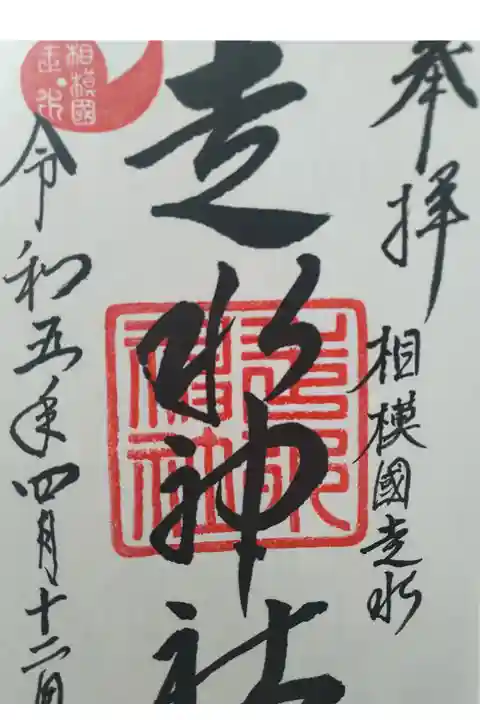 奉拝
相模國走水
走水神社
走水神社
令和五年四月十二日
相模國
走水